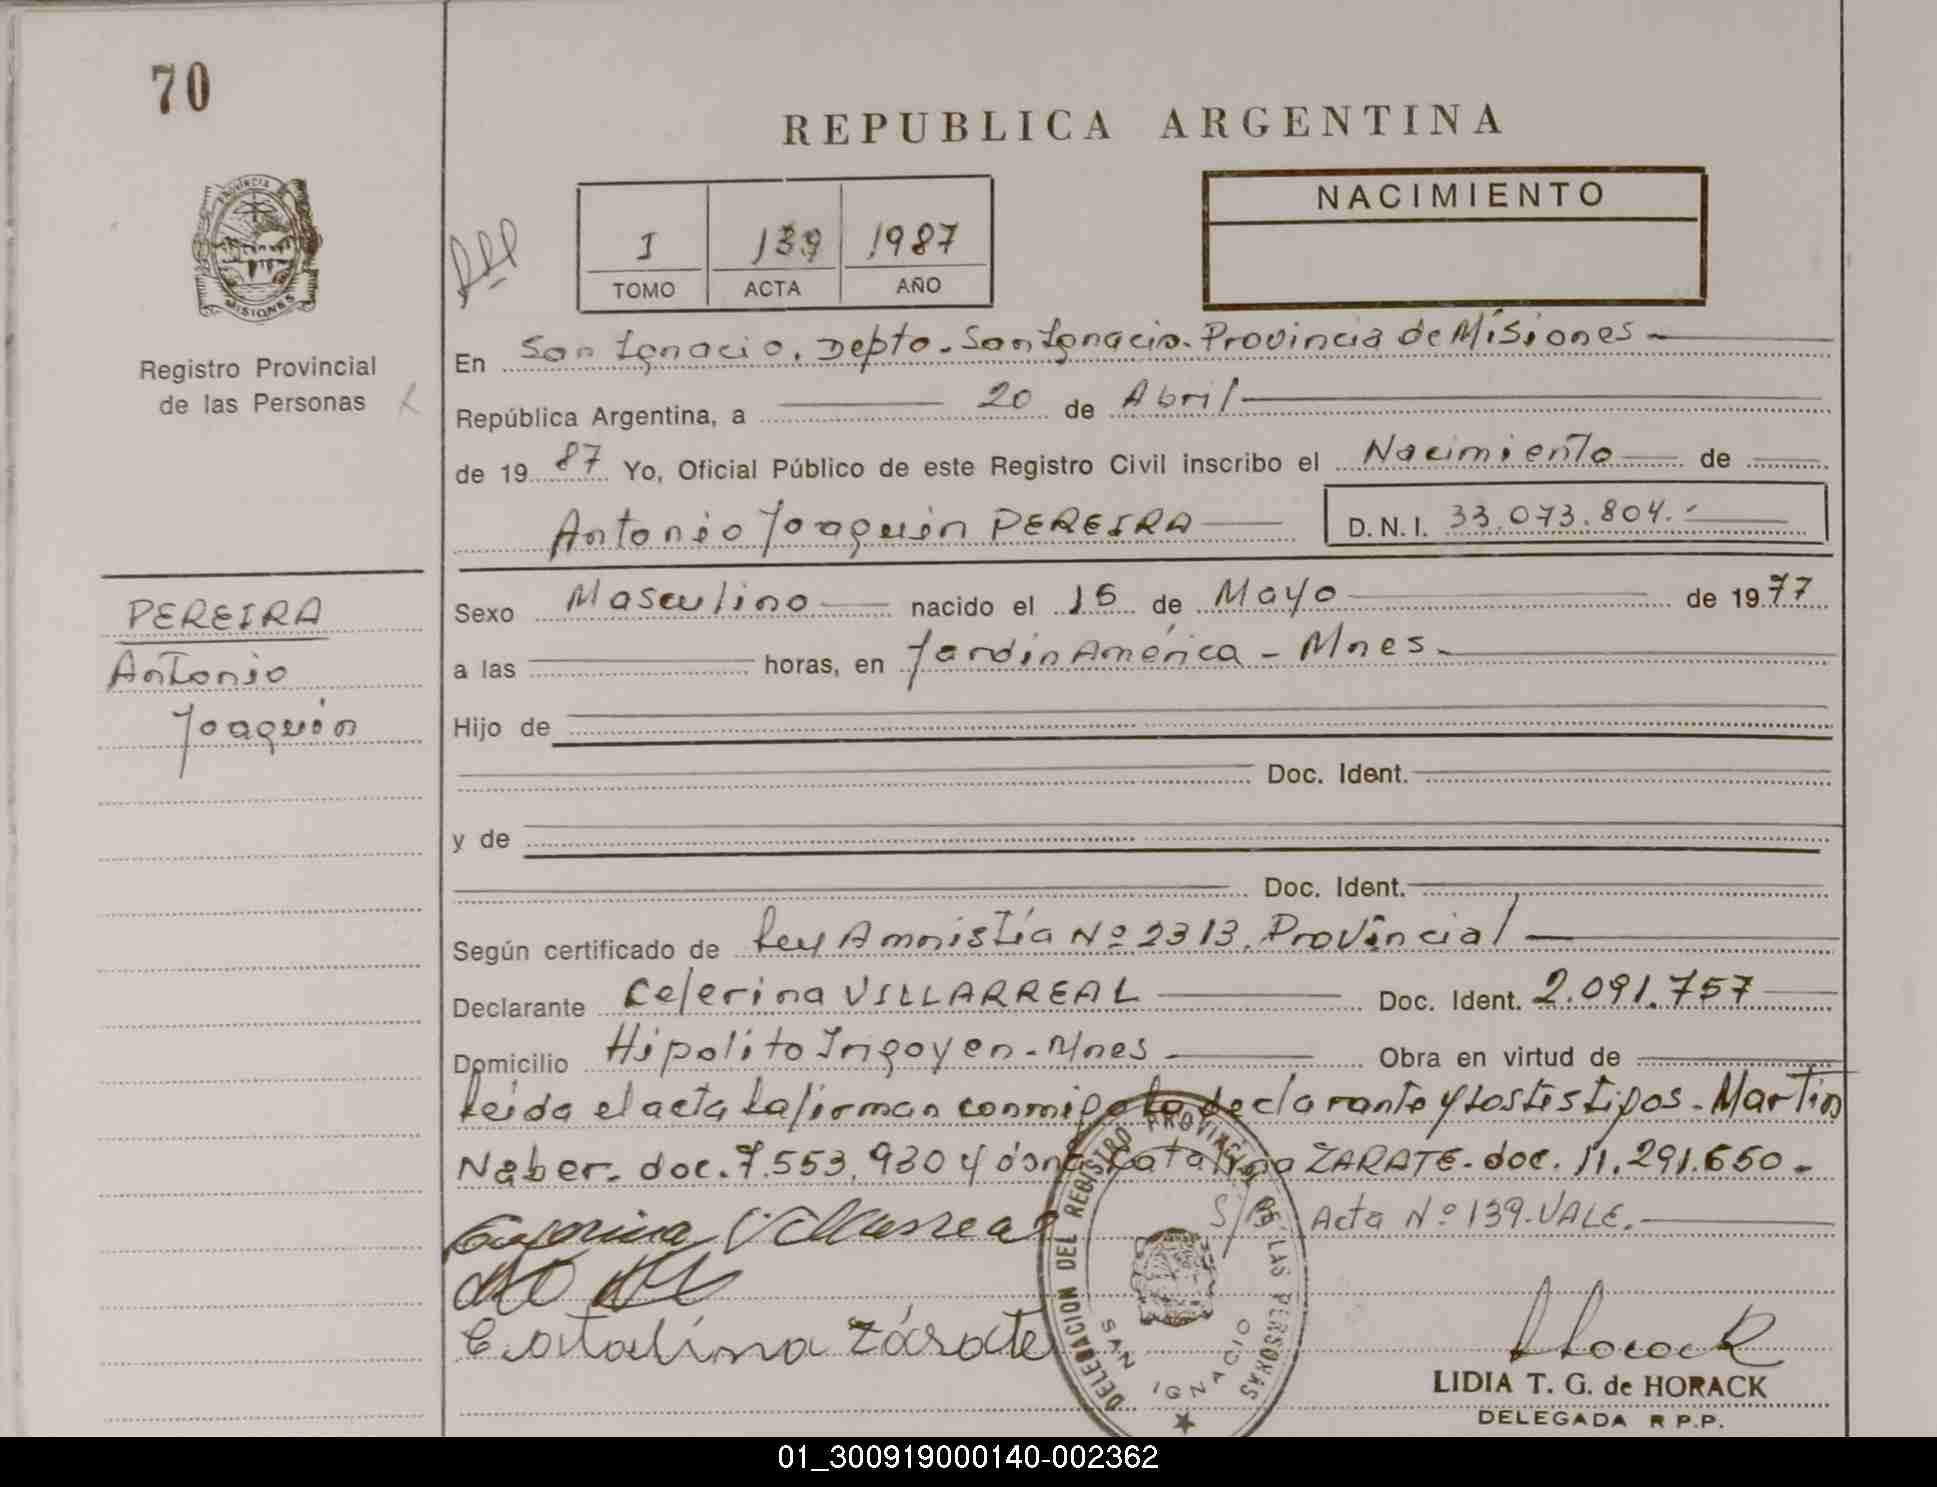 70
REPUBLICA ARGENTINA
NACIMIENTO
I 139 1987
TOMO ACTA AÑO
PROVINCIA
MISIONES
Registro Provincial
de las Personas
En San Ignacio. Depto. San Ignacio. Provincia de Misiones
República Argentina, a 20 de Abril
de 19 87 Yo, Oficial Público de este Registro Civil inscribo el Nacimiento de
Antonio Joaquin PEREIRA D.N.I. 33.073.804.-
PEREIRA
Antonio
Joaquin
Sexo Masculino nacido el 15 de Mayo de 1977
a las horas, en Jardin América - Mnes.
Hijo de
Doc. Ident.
y de
Doc. Ident.
Según certificado de Ley Amnistía Nº 2313. Provincial
Declarante Celerina VILLARREAL Doc. Ident. 2.091.757
Domicilio Hipolito Irigoyen - Mnes Obra en virtud de
Leida el acta la firman conmigo la declarante y los testigos. Martin
Naber. doc. 7.553.930 y doña Catalina ZARATE. doc. 11.291.650.
S/R Acta Nº 139. VALE.
Villarreal
Catalina Zárate
DELEGACION DEL REGISTRO PROVINCIAL DE LAS PERSONAS
SAN IGNACIO
Horack
LIDIA T. G. de HORACK
DELEGADA R P.P.
01_300919000140-002362